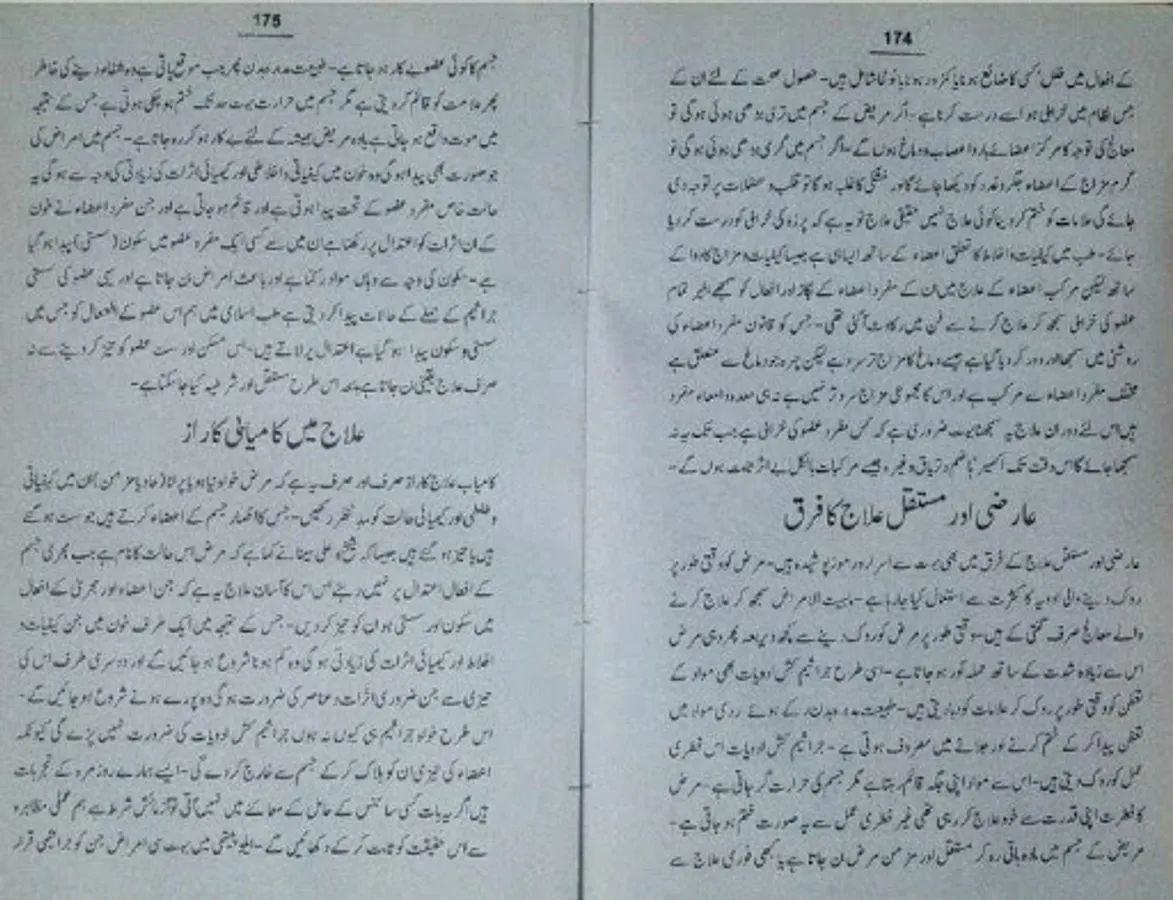 174
کے افعال میں نقص کسی کا ضائع ہونا یا کمزور ہونا یا نوٹا شامل ہیں۔ حصول صحت کے لئے ان کے
جس نظام میں خرابی ہو اسے درست کرنا ہے۔ اگر مریض کے جسم میں تری بڑھی ہوئی ہو گی تو
معالج کی توجہ کا مرکز اعضائے بارد اعصاب و دماغ ہوں گے۔ اگر جسم میں گرمی بڑھی ہوئی ہو گی تو
گرم مزاج کے اعضاء جگر و غدد کو دیکھا جائے گا اور خشکی کا غلبہ ہو گا تو قلب و عضلات پر توجہ دی
جائے گی علامات کو ختم کر دینا کوئی علاج نہیں حقیقی علاج تو یہ ہے کہ پرزہ کی خرابی کو درست کر دیا
جائے۔ طب میں کیفیات و اخلاط کا تعلق اعضاء کے ساتھ ایسا ہی ہے جیسا کیفیات و مزاج کا دوا کے
ساتھ لیکن مرکب اعضاء کے علاج میں ان کے مفرد اعضاء کے بگاڑ اور افعال کو سمجھے بغیر تمام
عضو کی خرابی سمجھ کر علاج کرنے سے فن میں رکاوٹ آ گئی تھی۔ جس کو قانون مفرد اعضاء کی
روشنی میں سمجھا اور دور کر دیا گیا ہے جیسے دماغ کا مزاج تر سرد ہے لیکن چہرہ جو دماغ سے متعلق ہے
مختلف مفرد اعضاء سے مرکب ہے اور اس کا مجموعی مزاج سرد تر نہیں ہے نہ ہی معدہ و امعاء مفرد
ہیں اس لئے دوران علاج یہ سمجھنا بہت ضروری ہے کہ کس مفرد عضو کی خرابی ہے جب تک یہ نہ
سمجھا جائے گا اس وقت تک اکسیر ہاضم و تریاق وغیرہ جیسے مرکبات بالکل بے اثر ثابت ہوں گے۔
عارضی اور مستقل علاج کا فرق
عارضی اور مستقل علاج کے فرق میں بھی بہت سے اسرار و رموز پوشیدہ ہیں۔ مرض کو وقتی طور پر
روک دینے والی ادویہ کا کثرت سے استعمال کیا جا رہا ہے۔ ماہیت الامراض سمجھ کر علاج کرنے
والے معالج صرف گنتی کے ہیں۔ وقتی طور پر مرض کو روک دینے سے کچھ دیر بعد پھر وہی مرض
اس سے زیادہ شدت کے ساتھ حملہ آور ہو جاتا ہے۔ اسی طرح جراثیم کش ادویات بھی مواد کے
تعفن کو وقتی طور پر روک کر علامات کو دبا دیتی ہیں۔ طبیعت مدبرہ بدن رکے ہوئے ردی مواد میں
تعفن پیدا کر کے ختم کرنے اور جلانے میں مصروف ہوتی ہے۔ جراثیم کش ادویات اس فطری
عمل کو روک دیتی ہیں۔ اس سے مواد اپنی جگہ قائم رہتا ہے مگر جسم کی حرارت گر جاتی ہے۔ مرض
کا فطرت اپنی قدرت سے خود علاج کر رہی تھی غیر فطری عمل سے یہ صورت ختم ہو جاتی ہے۔
مریض کے جسم میں مادہ باقی رہ کر مستقل اور مزمن مرض بن جاتا ہے یا کبھی فوری علاج سے
175
جسم کا کوئی عضو بے کار ہو جاتا ہے۔ طبیعت مدبرہ بدن پھر جب موقع پاتی ہے وہ شفاء دینے کی خاطر
پھر علامت کو قائم کر دیتی ہے مگر جسم میں حرارت بہت حد تک ختم ہو چکی ہوتی ہے جس کے نتیجہ
میں موت واقع ہو جاتی ہے یا وہ مریض ہمیشہ کے لئے بے کار ہو کر رہ جاتا ہے۔ جسم میں امراض کی
جو صورت بھی پیدا ہو گی وہ خون میں کیفیاتی و اخلاطی اور کیمیائی اثرات کی زیادتی کی وجہ سے ہو گی یہ
حالت خاص مفرد عضو کے تحت پیدا ہوتی ہے اور قائم ہو جاتی ہے اور جن مفرد اعضاء نے خون
کے ان اثرات کو اعتدال پر رکھنا ہے ان میں سے کسی ایک مفرد عضو میں سکون (سستی) پیدا ہو گیا
ہے۔ سکون کی وجہ سے وہاں مواد رکتا ہے اور باعث امراض بن جاتا ہے اور یہی عضو کی سستی
جراثیم کے حملے کے حالات پیدا کر دیتی ہے طب اسلامی میں ہم اس عضو کے افعال کو جس میں
سستی و سکون پیدا ہو گیا ہے اعتدال پر لاتے ہیں۔ اس مسکن اور سست عضو کو تیز کر دینے سے نہ
صرف علاج یقینی بن جاتا ہے بلکہ اس طرح مستقل اور شرطیہ کیا جا سکتا ہے۔
علاج میں کامیابی کا راز
کامیاب علاج کا راز صرف اور صرف یہ ہے کہ مرض خواہ نیا ہو یا پرانا (حاد یا مزمن) ان میں کیفیاتی
و خلطی اور کیمیائی حالت کو مد نظر رکھیں۔ جس کا اظہار جسم کے اعضاء کرتے ہیں جو سست ہو گئے
ہیں یا تیز ہو گئے ہیں جیسا کہ شیخ بو علی سینا نے کہا ہے کہ مرض اس حالت کا نام ہے جب مجری جسم
کے افعال اعتدال پر نہیں رہتے بس اس کا آسان علاج یہ ہے کہ جن اعضاء اور مجری کے افعال
میں سکون اور سستی ہو ان کو تیز کر دیں۔ جس کے نتیجہ میں ایک طرف خون میں جن کیفیات و
اخلاط اور کیمیائی اثرات کی زیادتی ہو گی وہ کم ہونا شروع ہو جائیں گے اور دوسری طرف اس کی
تیزی سے جن ضروری اثرات و عناصر کی ضرورت ہو گی وہ پورے ہونے شروع ہو جائیں گے۔
اس طرح خواہ جراثیم ہی کیوں نہ ہوں جراثیم کش ادویات کی ضرورت نہیں پڑے گی کیونکہ
اعضاء کی تیزی ان کو ہلاک کر کے جسم سے خارج کر دے گی۔ ایسے ہمارے روزمرہ کے تجربات
ہیں اگر یہ بات کسی سائنس کے حامل کے معائنے میں نہیں آتی تو آزمائش شرط ہے ہم عملی مظاہرہ
سے اس حقیقت کو ثابت کر کے دکھائیں گے۔ ایلوپیتھی میں بہت سی امراض جن کو جراثیمی قرار